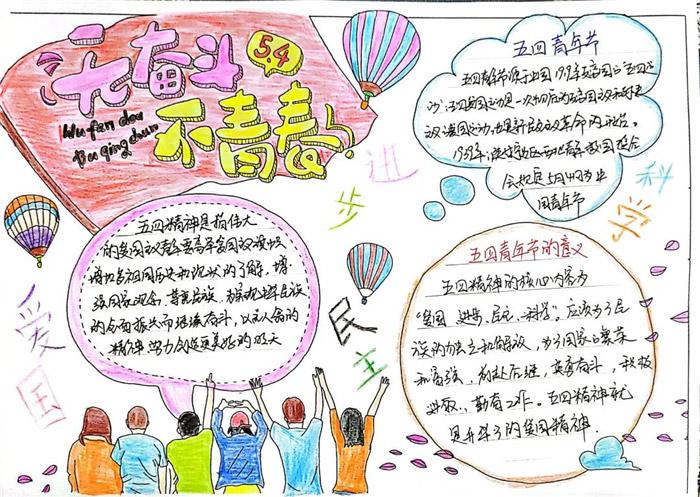 无奋斗
5.4
不青春
Wu fen dou
Bu qing chun
五四青年节
五四青年节源于我国1919年反帝国的"五四运
动,五四爱国运动是一次彻底的反帝国主义和封建
主义爱国运动,也是新民主主义革命的开始。
1939年,陕甘宁边区西北青年救国联合
会规定5月4日为中
国青年节
进
步
科
学
爱
国
民
主
五四精神是指伟大
的爱国主义
增加
祖国历史和现状的了解,增
强国家观念,
民族
的全面振兴而
奋斗,以
精神努力创造更美好的明天
五四青年节的意义
五四精神的核心内容为
"爱国、进步、民主、科学"。应该为了民
族的独立和解放,为了国家的繁荣
和富强,前赴后继,英勇奋斗,积极
进取,勤奋工作。五四精神就
是升华了的爱国精神.